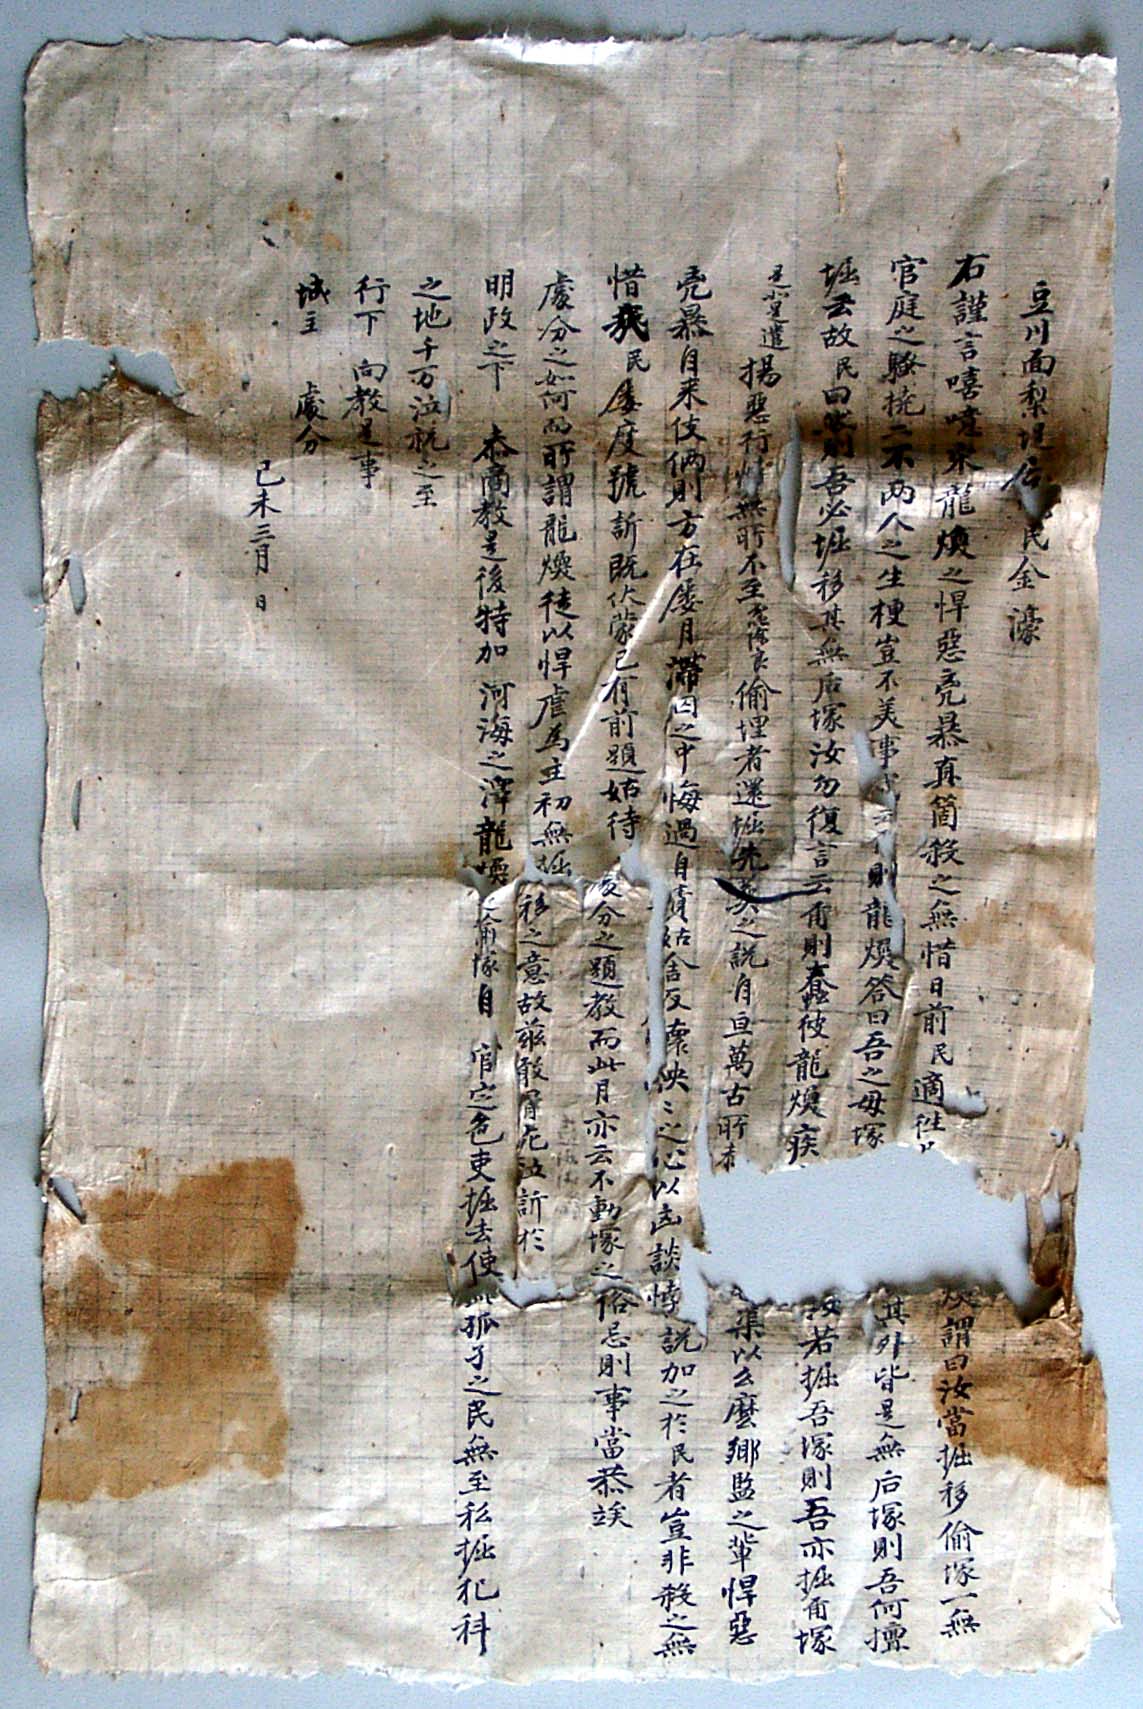 豆川面梨堤居民金濠
右謹言噫噫宋龍煥之悍惡亮暴真箇殺之無惜日前民適往 煥謂曰汝當掘移偷塚一無
官庭之騷撓二不兩人之生梗豈不美事 則龍煥答曰吾之母塚 其外皆是無后塚則吾何擅
掘云故民曰然則吾必掘移其無后塚汝勿復言云爾則蠢彼龍煥疾 汝若掘吾塚則吾亦掘甭塚
揚惡行 無所不至 偷埋者還掘先 之說自亘萬古所未 渠以么麼鄉監之輩悍惡
亮暴自來伎倆則方在屢月滯囚之中悔過自責姑舍反懷怏々之心以凶談悖說加之於民者豈非殺之無
惜哉民屢度號訴既伏蒙已有前題姑待 處分之題教而此月亦云不動塚之俗忌則事當恭竢
處分之如何而所謂龍煥徒以悍虐為主初無掘移之意故茲敢冒死泣訴於
明政之下 泰商教是後特加 河海之澤龍煥之偷塚自 官定色吏掘去使此孤子之民無至私掘犯科
之地千万泣祝之至
行下 向教是事
城主 處分
己未三月 日